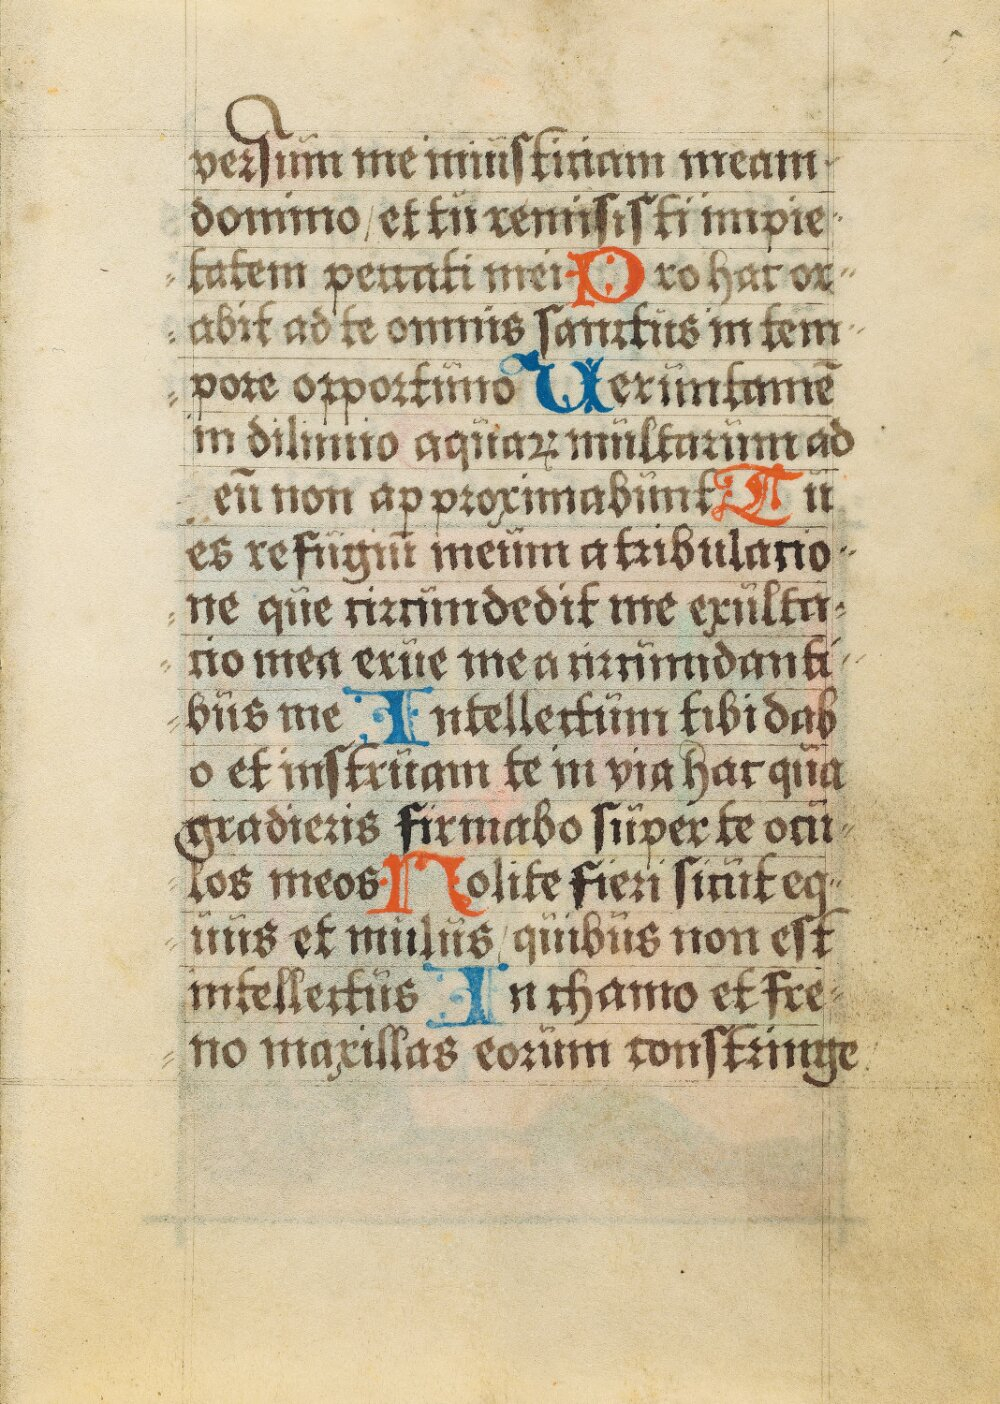 versum me iniusticiam meam
domino / et tu remisisti impie-
tatem peccati mei Pro hac or-
abit ad te omnis sanctus in tem-
pore opportuno Ueruntamē
in diluuio aquaꝝ multarum ad
eū non approximabunt Tu
es refugiū meum a tribulacio-
ne que circumdedit me exulta-
cio mea erue me a circumdanti-
bus me Intellectum tibi dab
o et instruam te in via hac qua
gradieris firmabo super te ocu-
los meos Nolite fieri sicut eq-
uus et mulus / quibus non est
intellectus In chamo et fre-
no maxillas eorum constringe